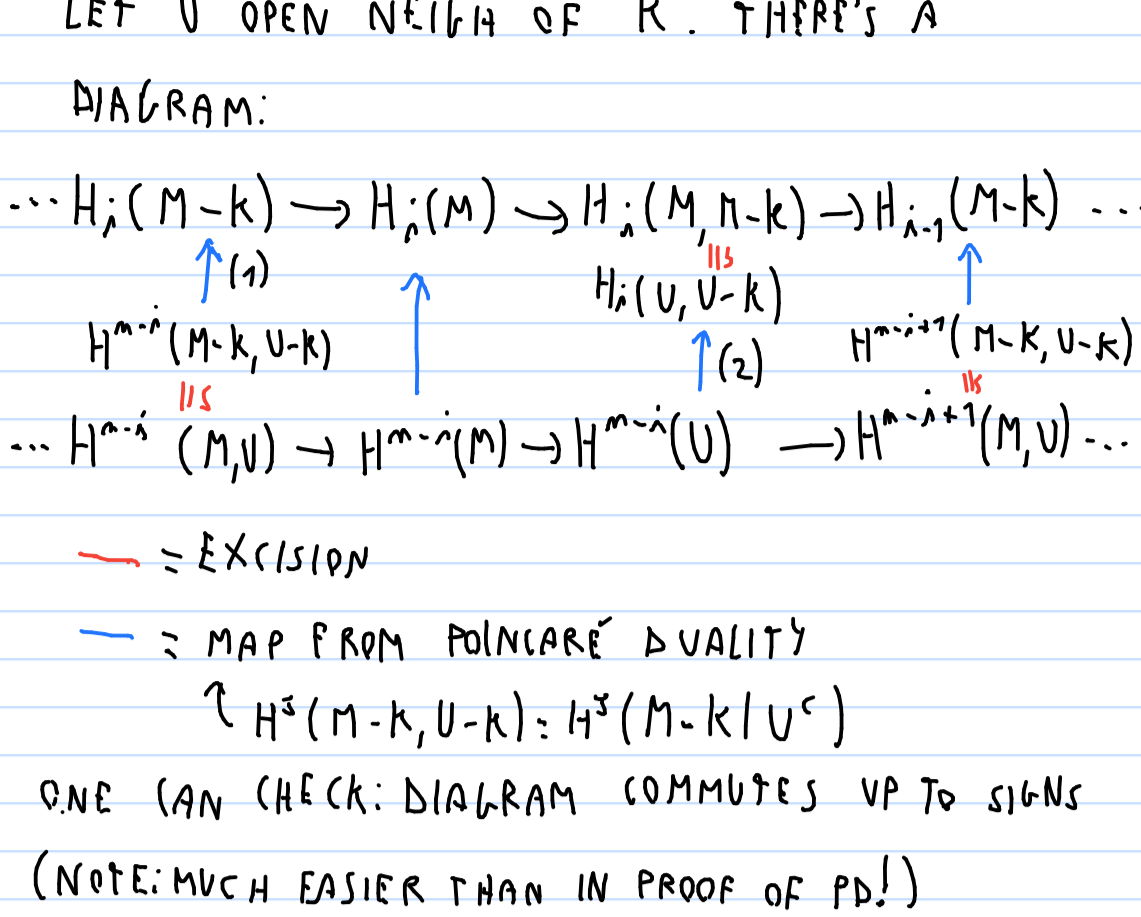 LET U OPEN NEIGH OF K. THERE'S A
DIAGRAM:
... H_i(M-K) → H_i(M) → H_i(M, M-K) → H_{i-1}(M-K) ...
↑(1) ↑ ≅ ↑
H_i(U, U-K)
H^{m-i}(M-K, U-K) ↑(2) H^{m-i+1}(M-K, U-K)
≅ ≅
... H^{m-i}(M,U) → H^{m-i}(M) → H^{m-i}(U) → H^{m-i+1}(M,U) ...
— = EXCISION
— = MAP FROM POINCARÉ DUALITY
↑ H^j(M-K, U-K) = H^j(M-K | U^c)
ONE CAN CHECK: DIAGRAM COMMUTES UP TO SIGNS
(NOTE: MUCH EASIER THAN IN PROOF OF PD!)